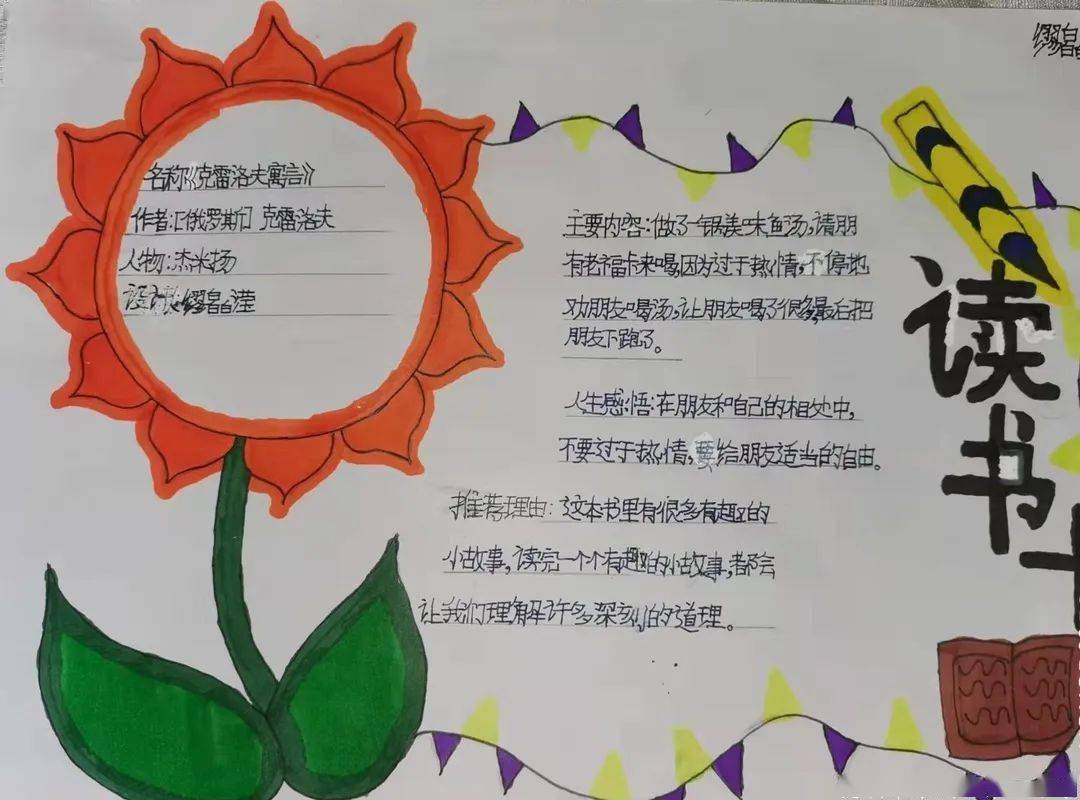 名称《克雷洛夫寓言》
作者:[俄罗斯] 克雷洛夫
人物:杰米扬
缪晶滢
主要内容:做了一锅美味鱼汤,请朋
有老福卡来喝,因为过于热情,不停地
劝朋友喝汤,让朋友喝了很多,最后把
朋友下跑了。
人生感悟:在朋友和自己的相处中,
不要过于热情,要给朋友适当的自由。
推荐理由:这本书里有很多有趣的
小故事,读完一个个有趣的小故事,都会
让我们理解许多深刻的道理。
读书